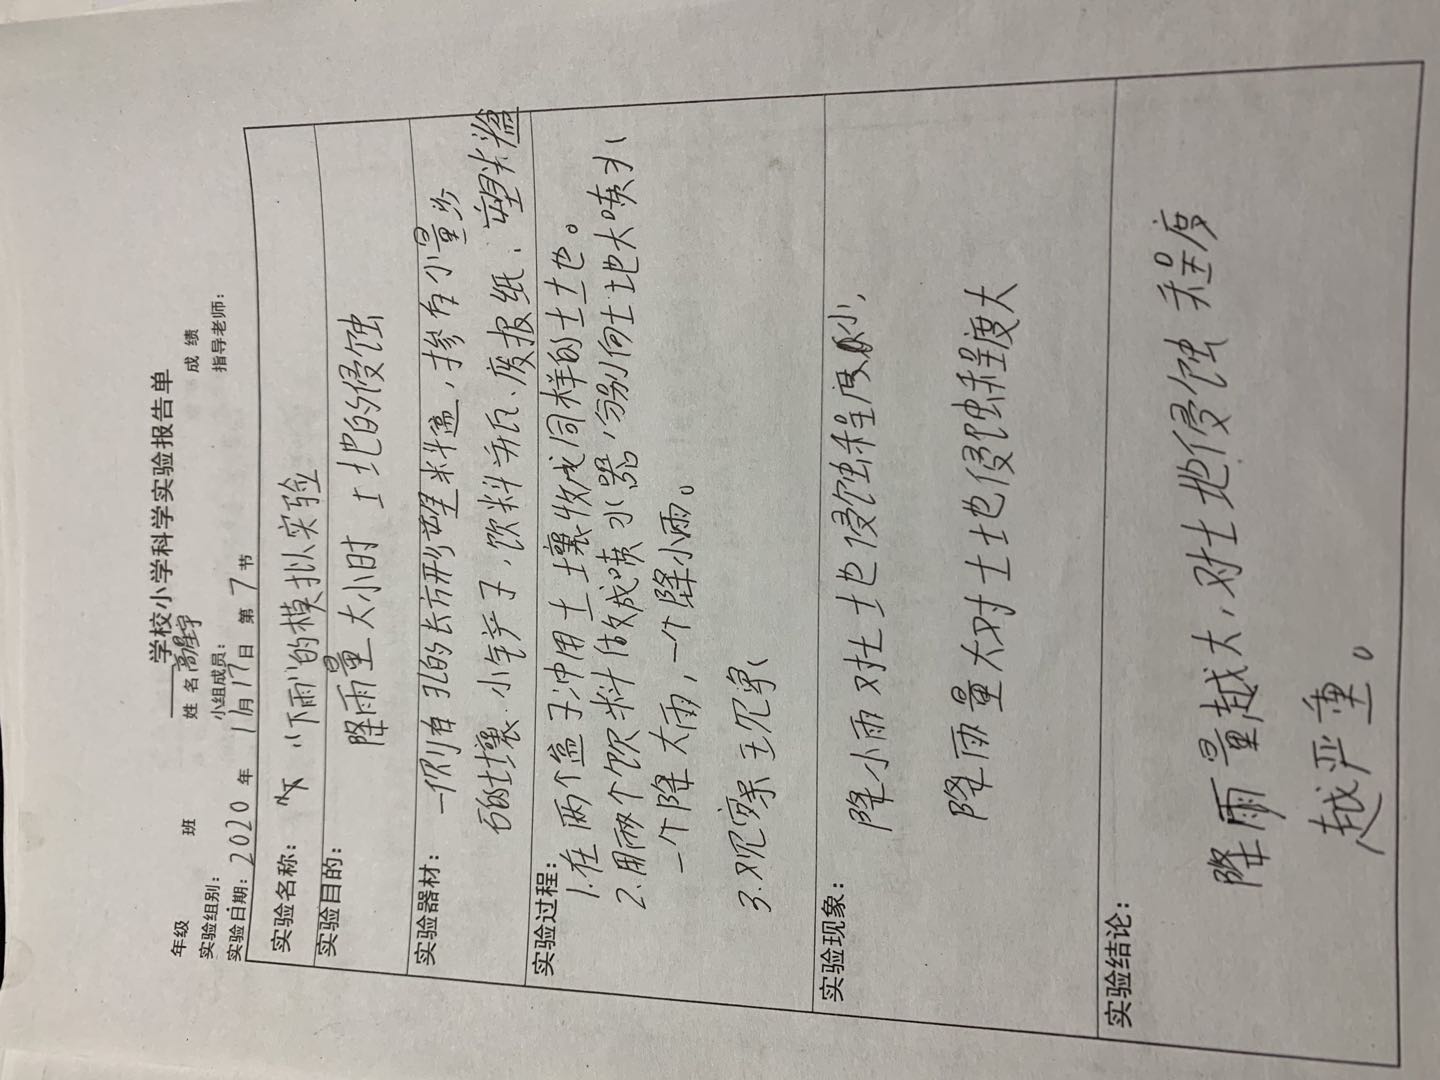 学校小学科学实验报告单
年级 班 姓名 高星宇 成绩
实验组别: 小组成员: 指导老师:
实验日期: 2020 年 11月 17日 第 7 节
实验名称: “下雨”的模拟实验
实验目的: 降雨量大小时 土地的侵蚀
实验器材: 一侧有孔的长方形塑料盒,掺有少量
的土壤、小铲子,饮料瓶、废报纸、塑料盆
实验过程:
1.在两个盆子冲用土土壤做成同样的土地。
2.用两个饮料做成喷水器,分别向土地大喷水
一个降大雨,一个降小雨。
3.观察
实验现象:
降小雨对土地侵蚀程度小,
降雨量大对土地侵蚀程度大
实验结论:
降雨量越大,对土地侵蚀程度
越严重。